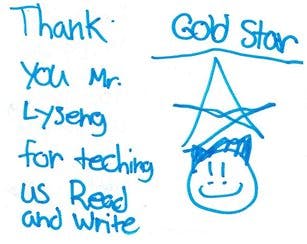 Thank
you Mr.
Lyseng
for teching
us Read
and write
Gold Star